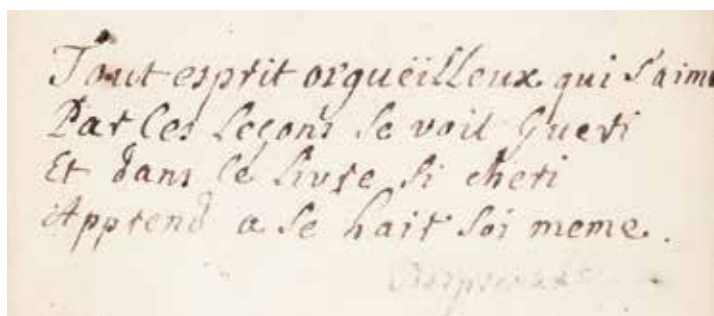 Tout esprit orgueilleux qui s'aime
Par les leçons se voit gueri
Et dans le livre si cheri
Apprend a se hair soi meme.